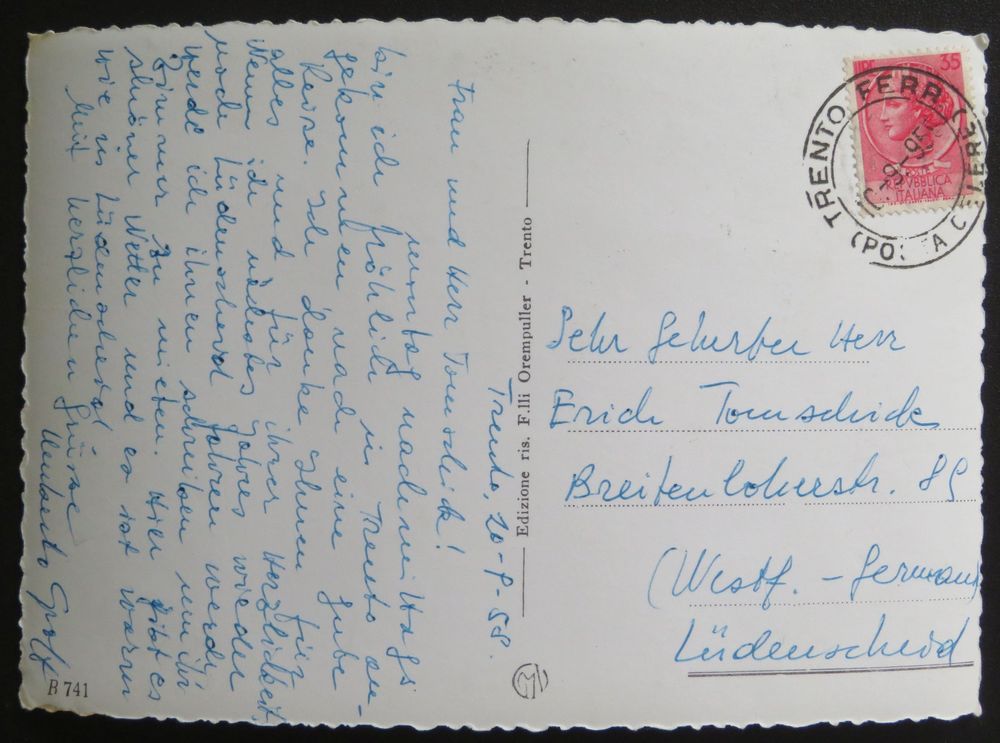 Trento, 20-8-58.
Frau und Herr Tomschick!
nachmittags
bin ich fröhlich in Trento an-
gekommen nach eine gute
Reise. Ich danke Ihnen für
alles und für ihrer Herzlichkeit.
Wenn ich nächstes Jahres wieder
nach Lüdenscheid fahren werde,
werde ich ihnen schreiben um ihr
Zimmer zu mieten. Hier gibt es
schöner Wetter und es ist warm
wie in Lüdenscheid
Mit herzlichen Grüsse
Umberto Graff
B 741
Edizione ris. F.lli Orempuller - Trento
35
POSTE
REPVBBLICA
ITALIANA
TRENTO FERR
CELERE)
Sehr Geherter Herr
Erich Tomschick
Breitenloherstr. 89
(Westf. - Germany
Lüdenscheid